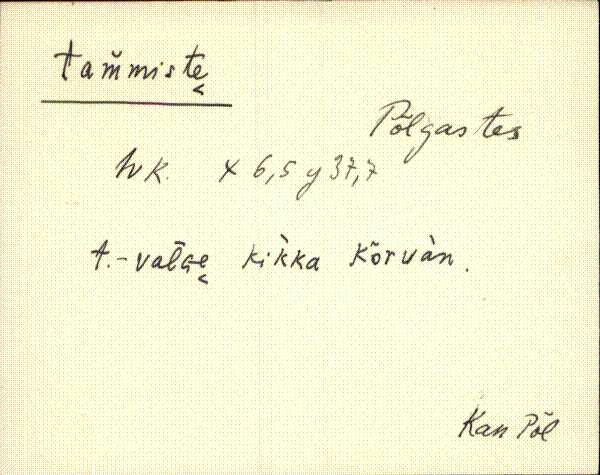 tam̆miste̬
Põlgastes
hk. x 6,5 y 37,7
t.-valGe̬ kìkka kõrvàn.
Kan Põl